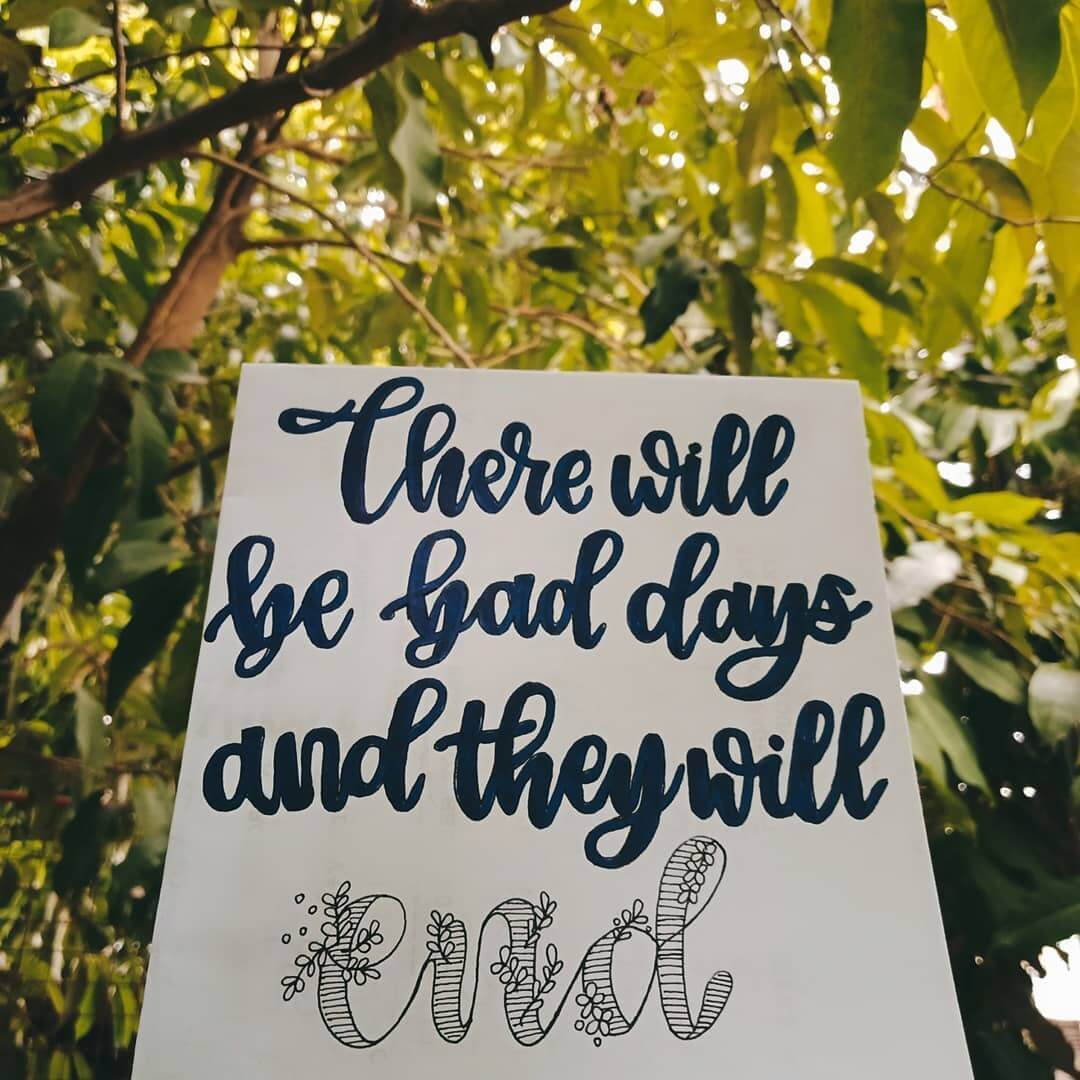 There will
be bad days
and they will
end